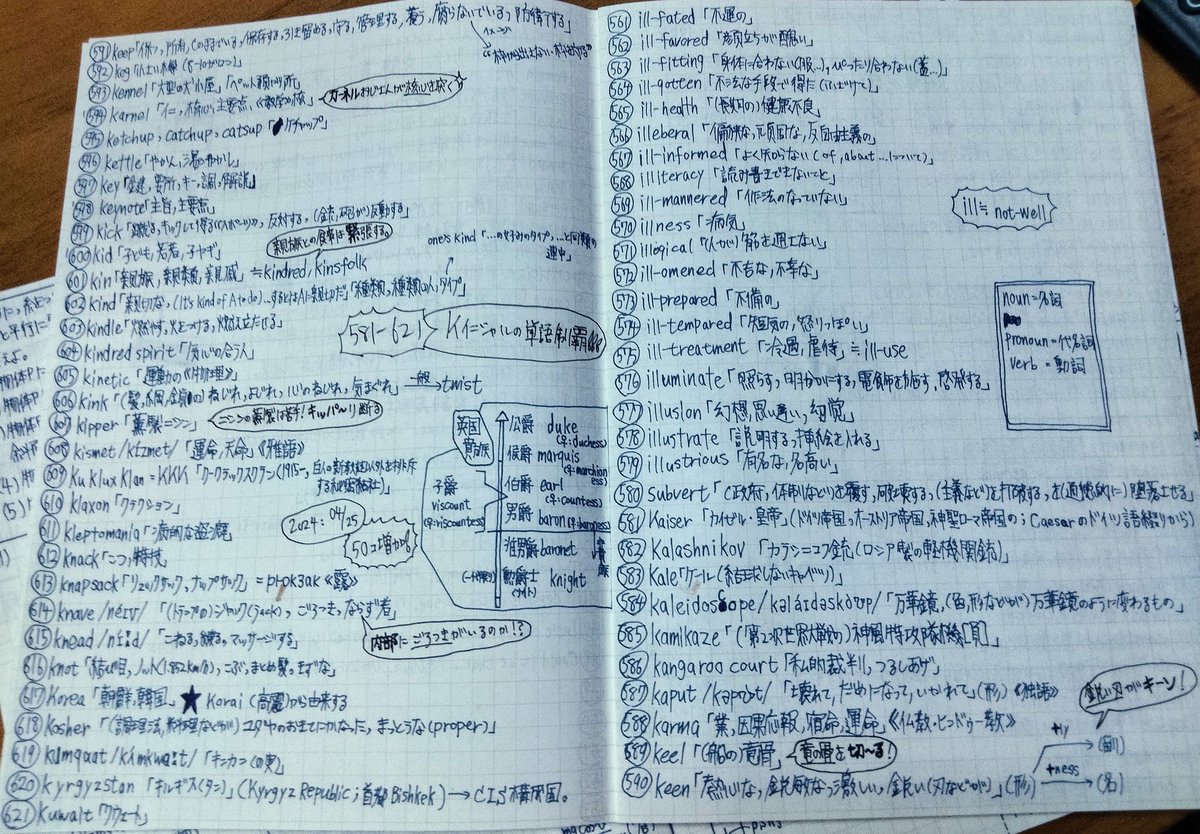 591 keep「保つ,所有,このままでいる,保存する,引き留める,守る,管理する,養う,腐らないでいる」
592 keg「小さい樽
593 kennel「大型の犬小屋」「ペット預かり所」
594 karnel「仁,核心,主要点,《数学》核」
カーネルおじさんが核心を突く
595 ketchup,catchup,catsup「ケチャップ」
596 kettle「やかん,湯わかし」
597 key「鍵,要所,キー,調,解説」
598 keynote「主旨,主要点」
599 kick「蹴る,キックして得る《スポーツ》,反対する,(銃,砲が)反動する」
600 kid「子ども,若者,子ヤギ」
親族との食事は緊張する。
601 kin「親族,親類,親戚」≒kindred,kinsfolk
one's kind「…の好みのタイプ,…と同類の連中」
602 kind「親切な,(It's kind of A to do)…するとはAは親切だ」「種類,種類の人,タイプ」
603 kindle「燃やす,火をつける,燃え立たせる」
581-621 Kイニシャルの単語制覇
604 kindred spirit「気心の合う人」
605 kinetic「運動の《物理》」
606 kink「(髪,綱,鎖の)ねじれ,よじれ,心のねじれ,気まぐれ」一般→twist
607 kipper「薫製ニシン」
ニシンの薫製は苦手!キッパ〜リ断る
608 kismet /kízmet/「運命,天命」《雅語》
609 Ku Klux Klan=KKK「クークラックスクラン(1915-,白人の新教徒以外を排斥する秘密結社)」
610 klaxon「クラクション」
611 kleptomania「病的な盗癖」
2024:04/25
50コ増かも
612 knack「こつ,特技」
613 knapsack「リュックサック,ナップサック」=рюкзак《露》
614 knave /néɪv/「(トランプの)ジャック(Jack),ごろつき,ならず者」
内部にごろつきがいるのか!?
615 knead /níːd/「こねる,練る,マッサージする」
616 knot「結び目,ノット(1.852km/h),こぶ,まとめ髪,きずな」
617 Korea「朝鮮,韓国」★Korai(高麗)から由来する
618 kosher「(調理法,料理などが)ユダヤのおきてにかなった,まっとうな(proper)」
619 kumquat /kʌ́mkwɑt/「キンカン(の実)」
620 kyrgyzstan「キルギス(タン)」(Kyrgyz Republic;首都Bishkek)→CIS構成国。
621 Kuwait「クウェート」
英国貴族
公爵 duke (♀:duchess)
侯爵 marquis (♀:marchioness)
伯爵 earl (♀:countess)
子爵 viscount (♀:viscountess)
男爵 baron (♀:baroness)
准男爵 baronet
勲爵士(ナイト) knight
(一代限り)
561 ill-fated「不運の」
562 ill-favored「顔立ちが醜い」
563 ill-fitting「身体に合わない(服…),ぴったり合わない(蓋…)」
564 ill-gotten「不法な手段で得た
565 ill-health「(長期の)健康不良」
566 illeberal「偏狭な,頑固な,反自由主義の」
567 ill-informed「よく知らない(of,about…について)」
568 illiteracy「読み書きできないこと」
569 ill-mannered「作法のなっていない」
ill≒not-well
570 illness「病気」
571 illogical「(人が)筋を通さない」
572 ill-omened「不吉な,不幸な」
573 ill-prepared「不備の」
574 ill-tempared「短気の,怒りっぽい」
575 ill-treatment「冷遇,虐待」≒ill-use
noun=名詞
pronoun=代名詞
verb=動詞
576 illuminate「照らす,明らかにする,電飾を施す,啓発する」
577 illusion「幻想,思い違い,幻覚」
578 illustrate「説明する,挿絵を入れる」
579 illustrious「有名な,名高い」
580 subvert「(政府,体制などを)覆す,破壊する,(主義などを)打破する,を(道徳的に)堕落させる」
581 Kaiser「カイゼル・皇帝」(ドイツ帝国,オーストリア帝国,神聖ローマ帝国の;Caesarのドイツ語綴りから)
582 Kalashnikov「カラシニコフ銃(ロシア製の軽機関銃)」
583 Kale「ケール(結球しないキャベツ)」
584 kaleidoscope /kəláɪdəskòʊp/「万華鏡,(色,形などが)万華鏡のように変わるもの」
585 kamikaze「(第2次世界大戦の)神風特攻隊機[員]」
586 kangaroo court「私的裁判,つるしあげ」
587 kaput /kəpʊ́t/「壊れて,だめになって,いかれて」(形)《独語》
588 karma「業,因果応報,宿命,運命」《仏教・ヒンドゥー教》
鋭い刃がキーン!
589 keel「(船の)竜骨」
竜の骨を切〜る!
590 keen「熱心な,鋭敏な,激しい,鋭い(刃などが)」(形)
+ly→(副)
+ness→(名)